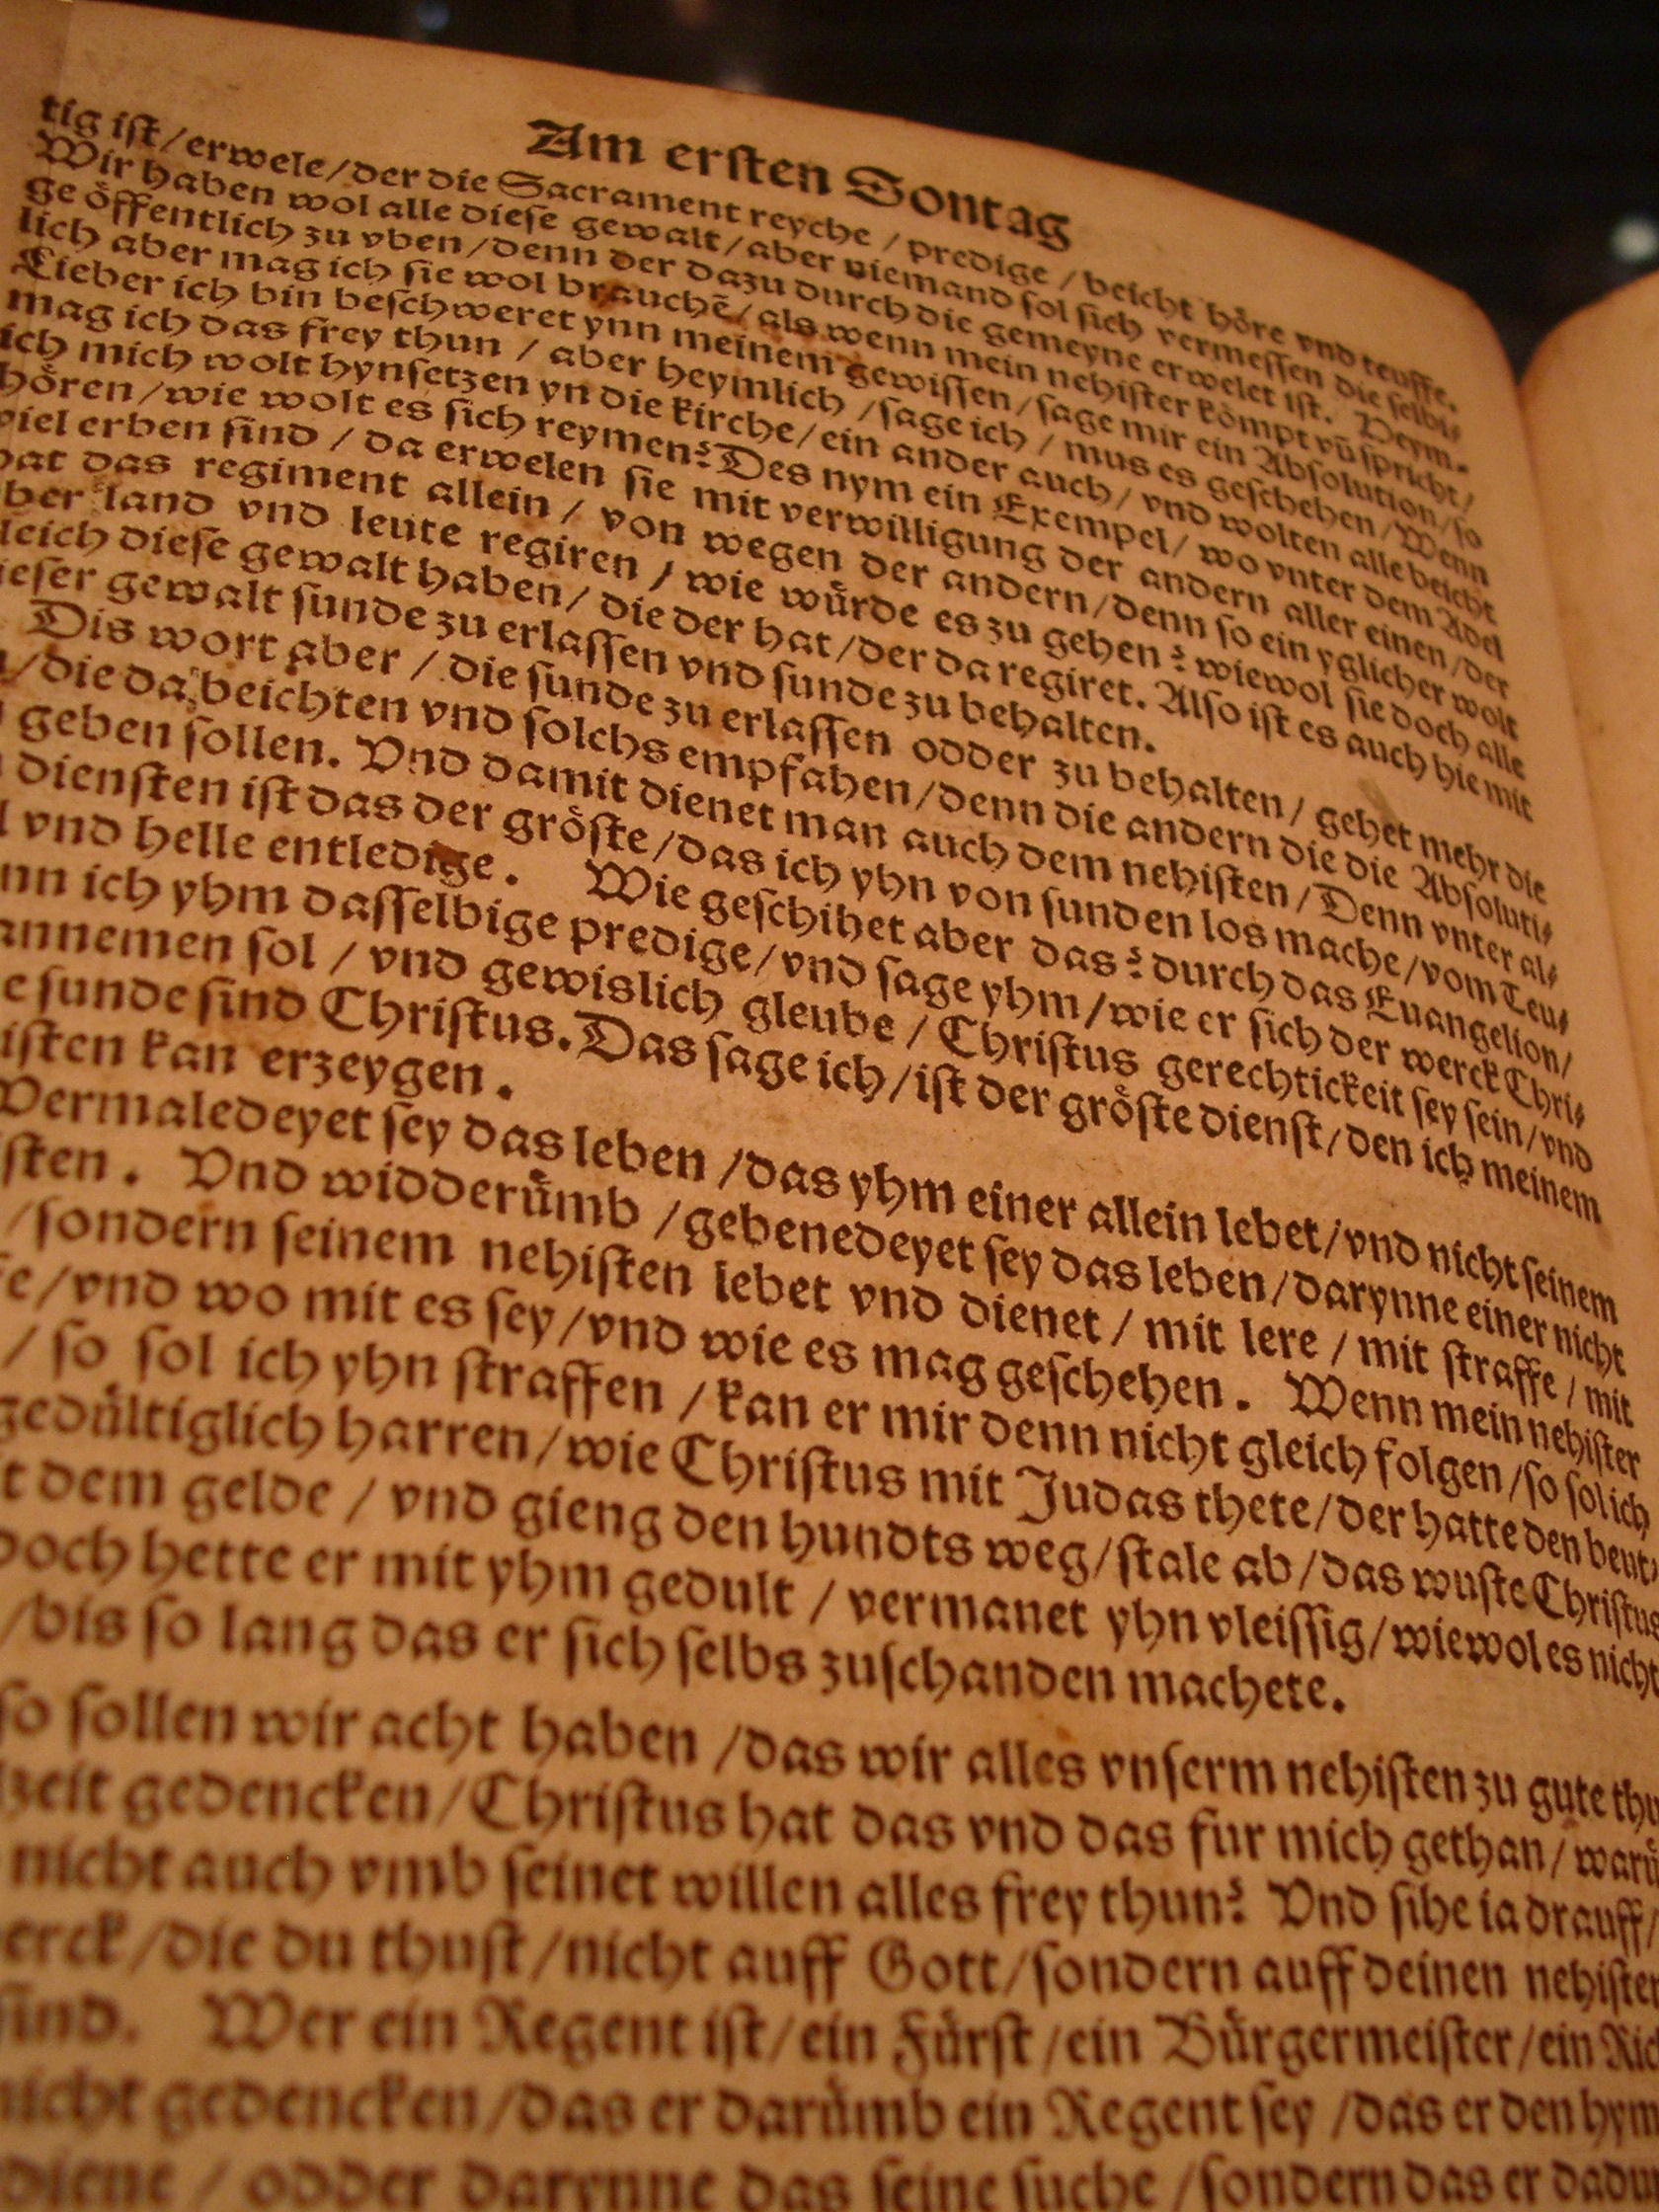 Am ersten Sontag
tig ist/erwele/der die Sacrament reyche / predige / beicht höre vnd teuffe.
Wir haben wol alle diese gewalt/aber niemand sol sich vermessen die selbi⸗
ge öffentlich zu vben/denn der dazu durch die gemeyne erwelet ist. Heym⸗
lich aber mag ich sie wol brauchē/als wenn mein nehister kömpt vñ spricht/
Lieber ich bin beschweret ynn meinem gewissen/sage mir ein Absolution/so
mag ich das frey thun / aber heymlich /sage ich / mus es geschehen/Wenn
ich mich wolt hynsetzen yn die kirche/ein ander auch/vnd wolten alle beicht
hören/wie wolt es sich reymen? Des nym ein Exempel/wo vnter dem Adel
viel erben sind / da erwelen sie mit verwilligung der andern aller einen/der
hat das regiment allein / von wegen der andern/denn so ein yglicher wolt
ber land vnd leute regiren / wie würde es zu gehen? wiewol sie doch alle
leich diese gewalt haben/die der hat/der da regiret. Also ist es auch hie mit
ieser gewalt sunde zu erlassen vnd sunde zu behalten.
Dis wort aber / die sunde zu erlassen odder zu behalten/gehet mehr die
/die da beichten vnd solchs empfahen/denn die andern die die Absoluti⸗
geben sollen. Vnd damit dienet man auch dem nehisten/Denn vnter al⸗
diensten ist das der gröste/das ich yhn von sunden los mache/vom Teu⸗
l vnd helle entledige. Wie geschihet aber das? durch das Euangelion/
nn ich yhm dasselbige predige/vnd sage yhm/wie er sich der werck Chri⸗
annemen sol / vnd gewislich gleube / Christus gerechtickeit sey sein/vnd
e sunde sind Christus. Das sage ich/ist der gröste dienst/den ich meinem
isten kan erzeygen.
Vermaledeyet sey das leben /das yhm einer allein lebet/vnd nicht seinem
isten. Vnd widderümb /gebenedeyet sey das leben/darynne einer nicht
/sondern seinem nehisten lebet vnd dienet / mit lere / mit straffe / mit
fe/vnd wo mit es sey/vnd wie es mag geschehen. Wenn mein nehister
/ so sol ich yhn straffen /kan er mir denn nicht gleich folgen /so sol ich
gedültiglich harren/wie Christus mit Judas thete/der hatte den beut⸗
t dem gelde / vnd gieng den hundts weg/stale ab/das wuste Christus
doch hette er mit yhm gedult / vermanet yhn vleissig/wiewol es nicht
/bis so lang das er sich selbs zuschanden machete.
so sollen wir acht haben /das wir alles vnserm nehisten zu gute thu
lzeit gedencken/Christus hat das vnd das fur mich gethan/warü
nicht auch vmb seinet willen alles frey thun? Vnd sihe ia drauff/
erck/die du thust/nicht auff Gott/sondern auff deinen nehisten
sind. Wer ein Regent ist/ein Fürst/ein Bürgermeister/ein Ric
nicht gedencken/das er darümb ein Regent sey /das er den hym
diene / odder darynne das seine suche /sondern das er dadur